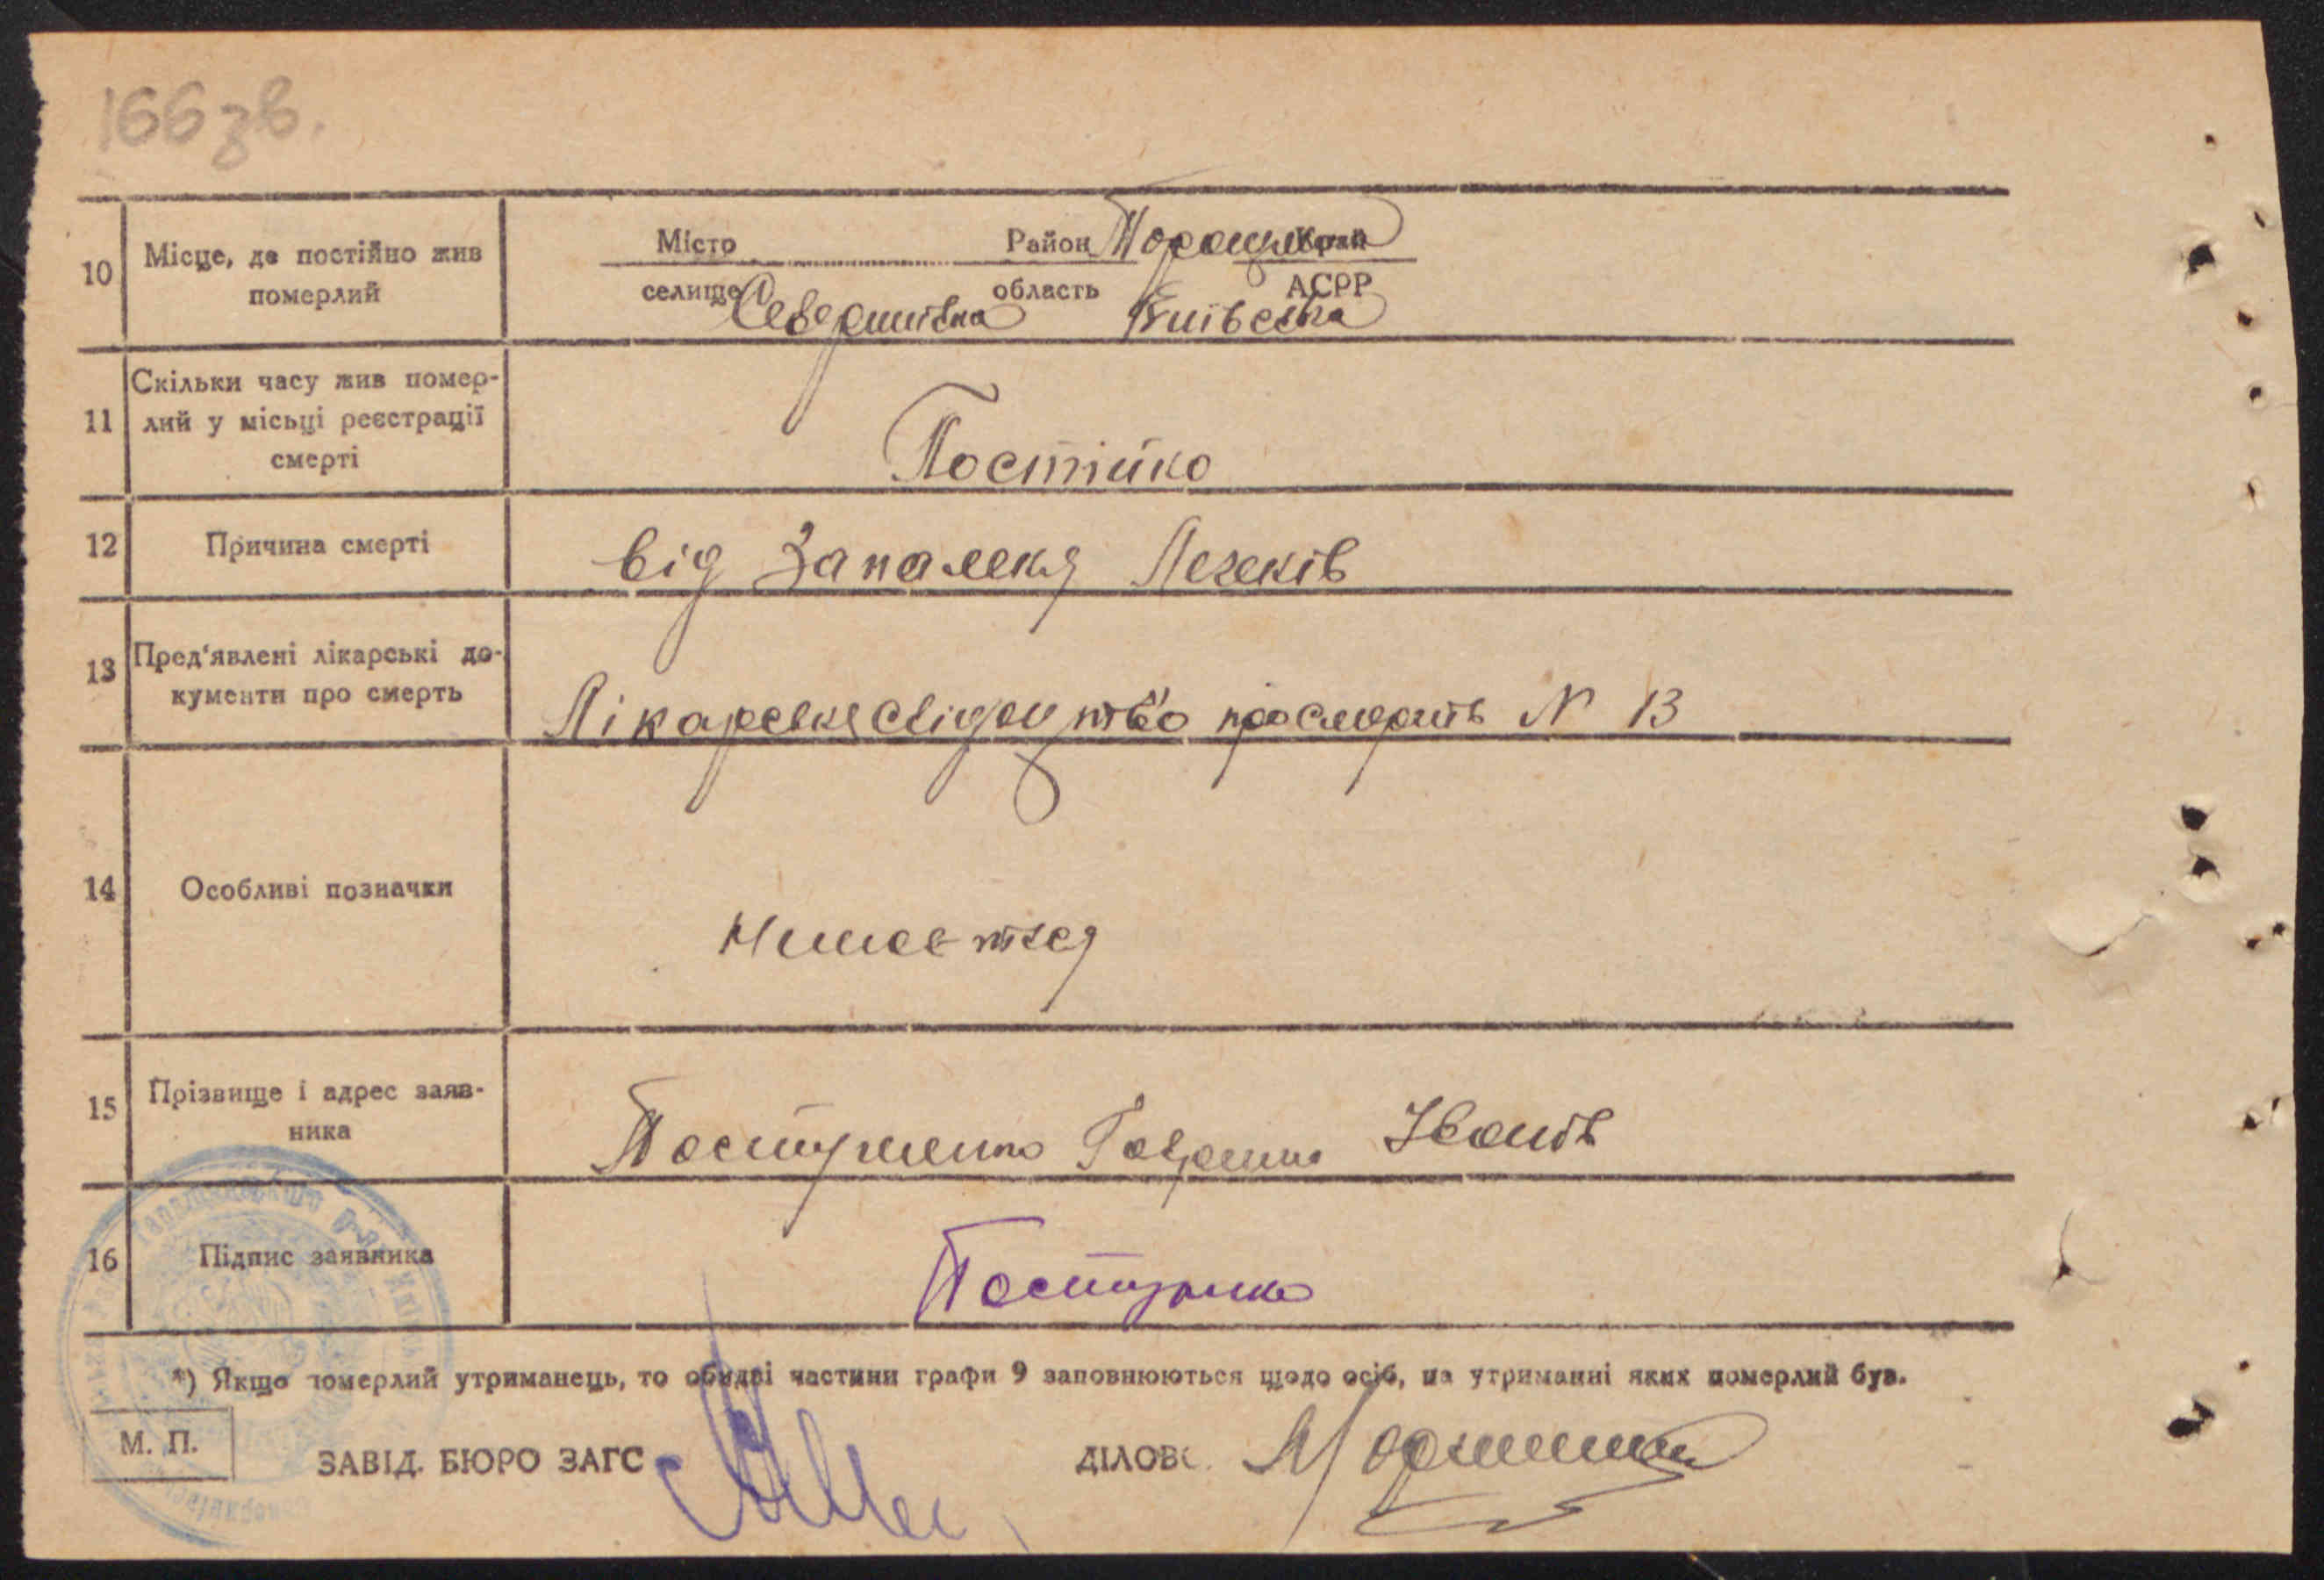 166 зв.
10 Місце, де постійно жив померлий
Місто Район Край
селище Северинівка область Київська АСРР
11 Скільки часу жив помер-
лий у місьці реєстрації
смерті
Постійно
12 Причина смерті
Від Запалення Легенів
13 Пред'явлені лікарські до-
кументи про смерть
Лікарське свідоцтво про смерть № 13
14 Особливі позначки
Немається
15 Прізвище і адрес заяв-
ника
16 Підпис заявника
*) Якщо померлий утриманець, то обидві частини графи 9 заповнюються щодо осіб, на утриманні яких померлий був.
М. П.
ЗАВІД. БЮРО ЗАГС
ДІЛОВ